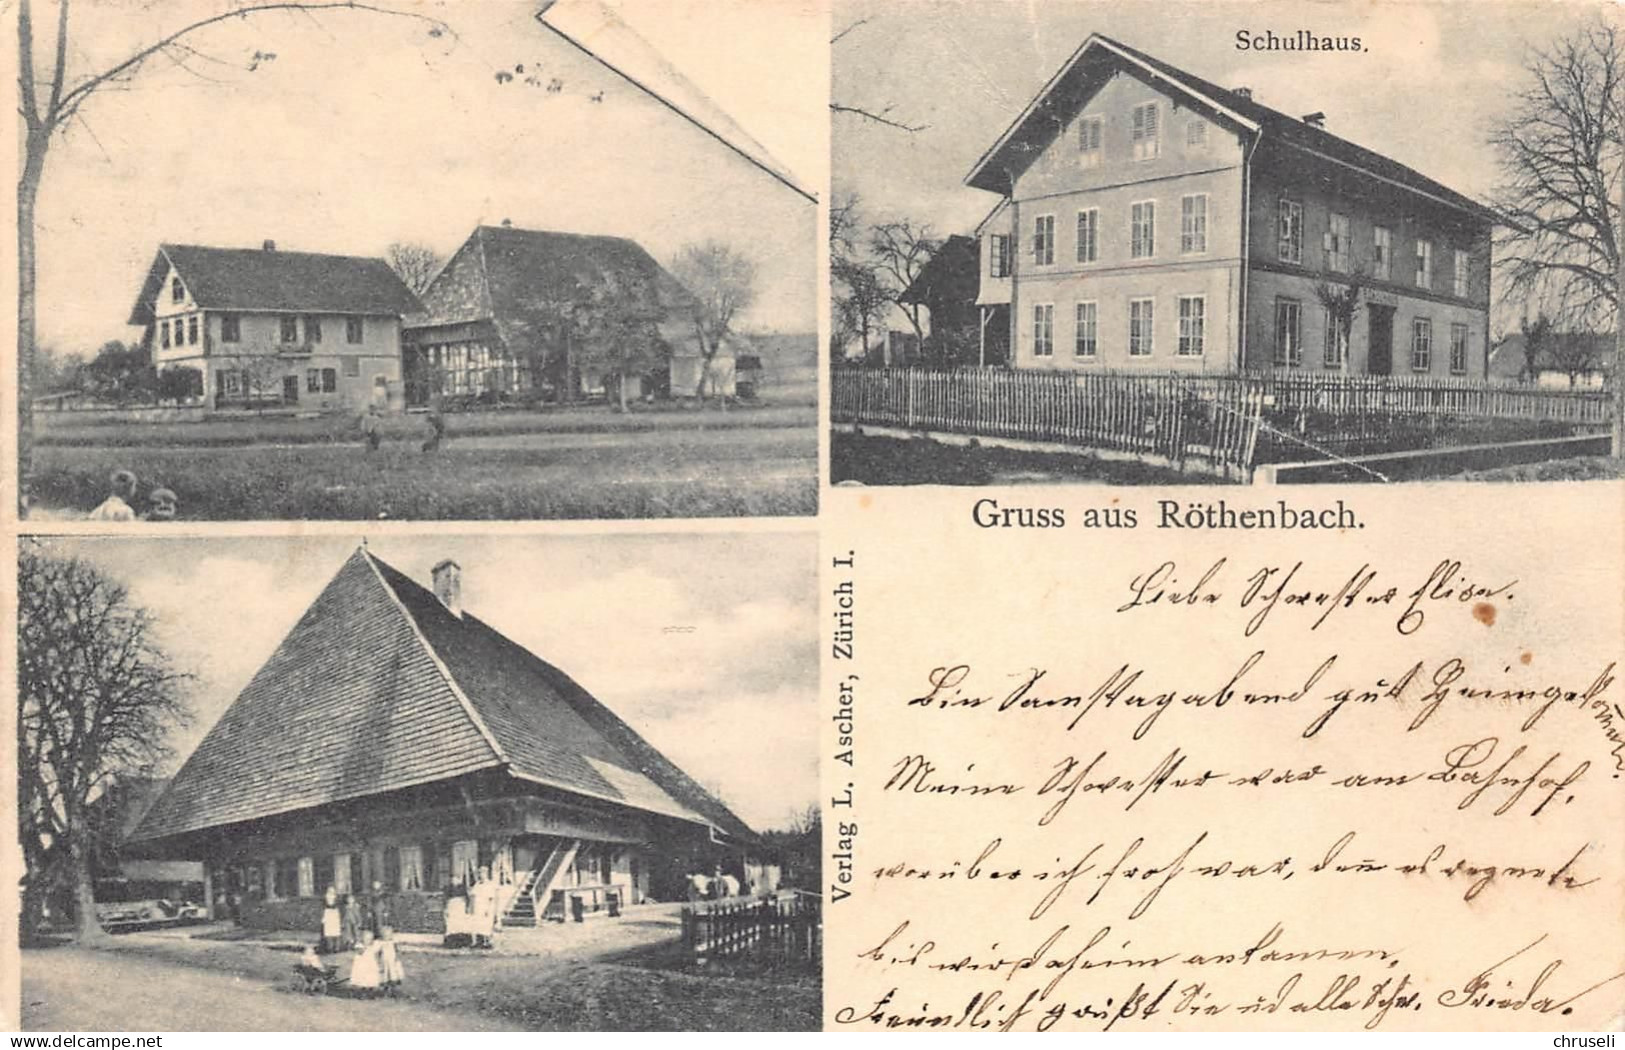 Schulhaus.
Gruss aus Röthenbach.
Verlag L. Ascher, Zürich I.
Liebe Schwester Elisa.
Bin Samstagabend gut Heimgekommen.
Meine Schwester war am Bahnhof,
worüber ich froh war, denn es regnete
bis wir daheim ankamen,
Freundlich grüßt Sie ud alle Schw. Frieda.
© chruseli